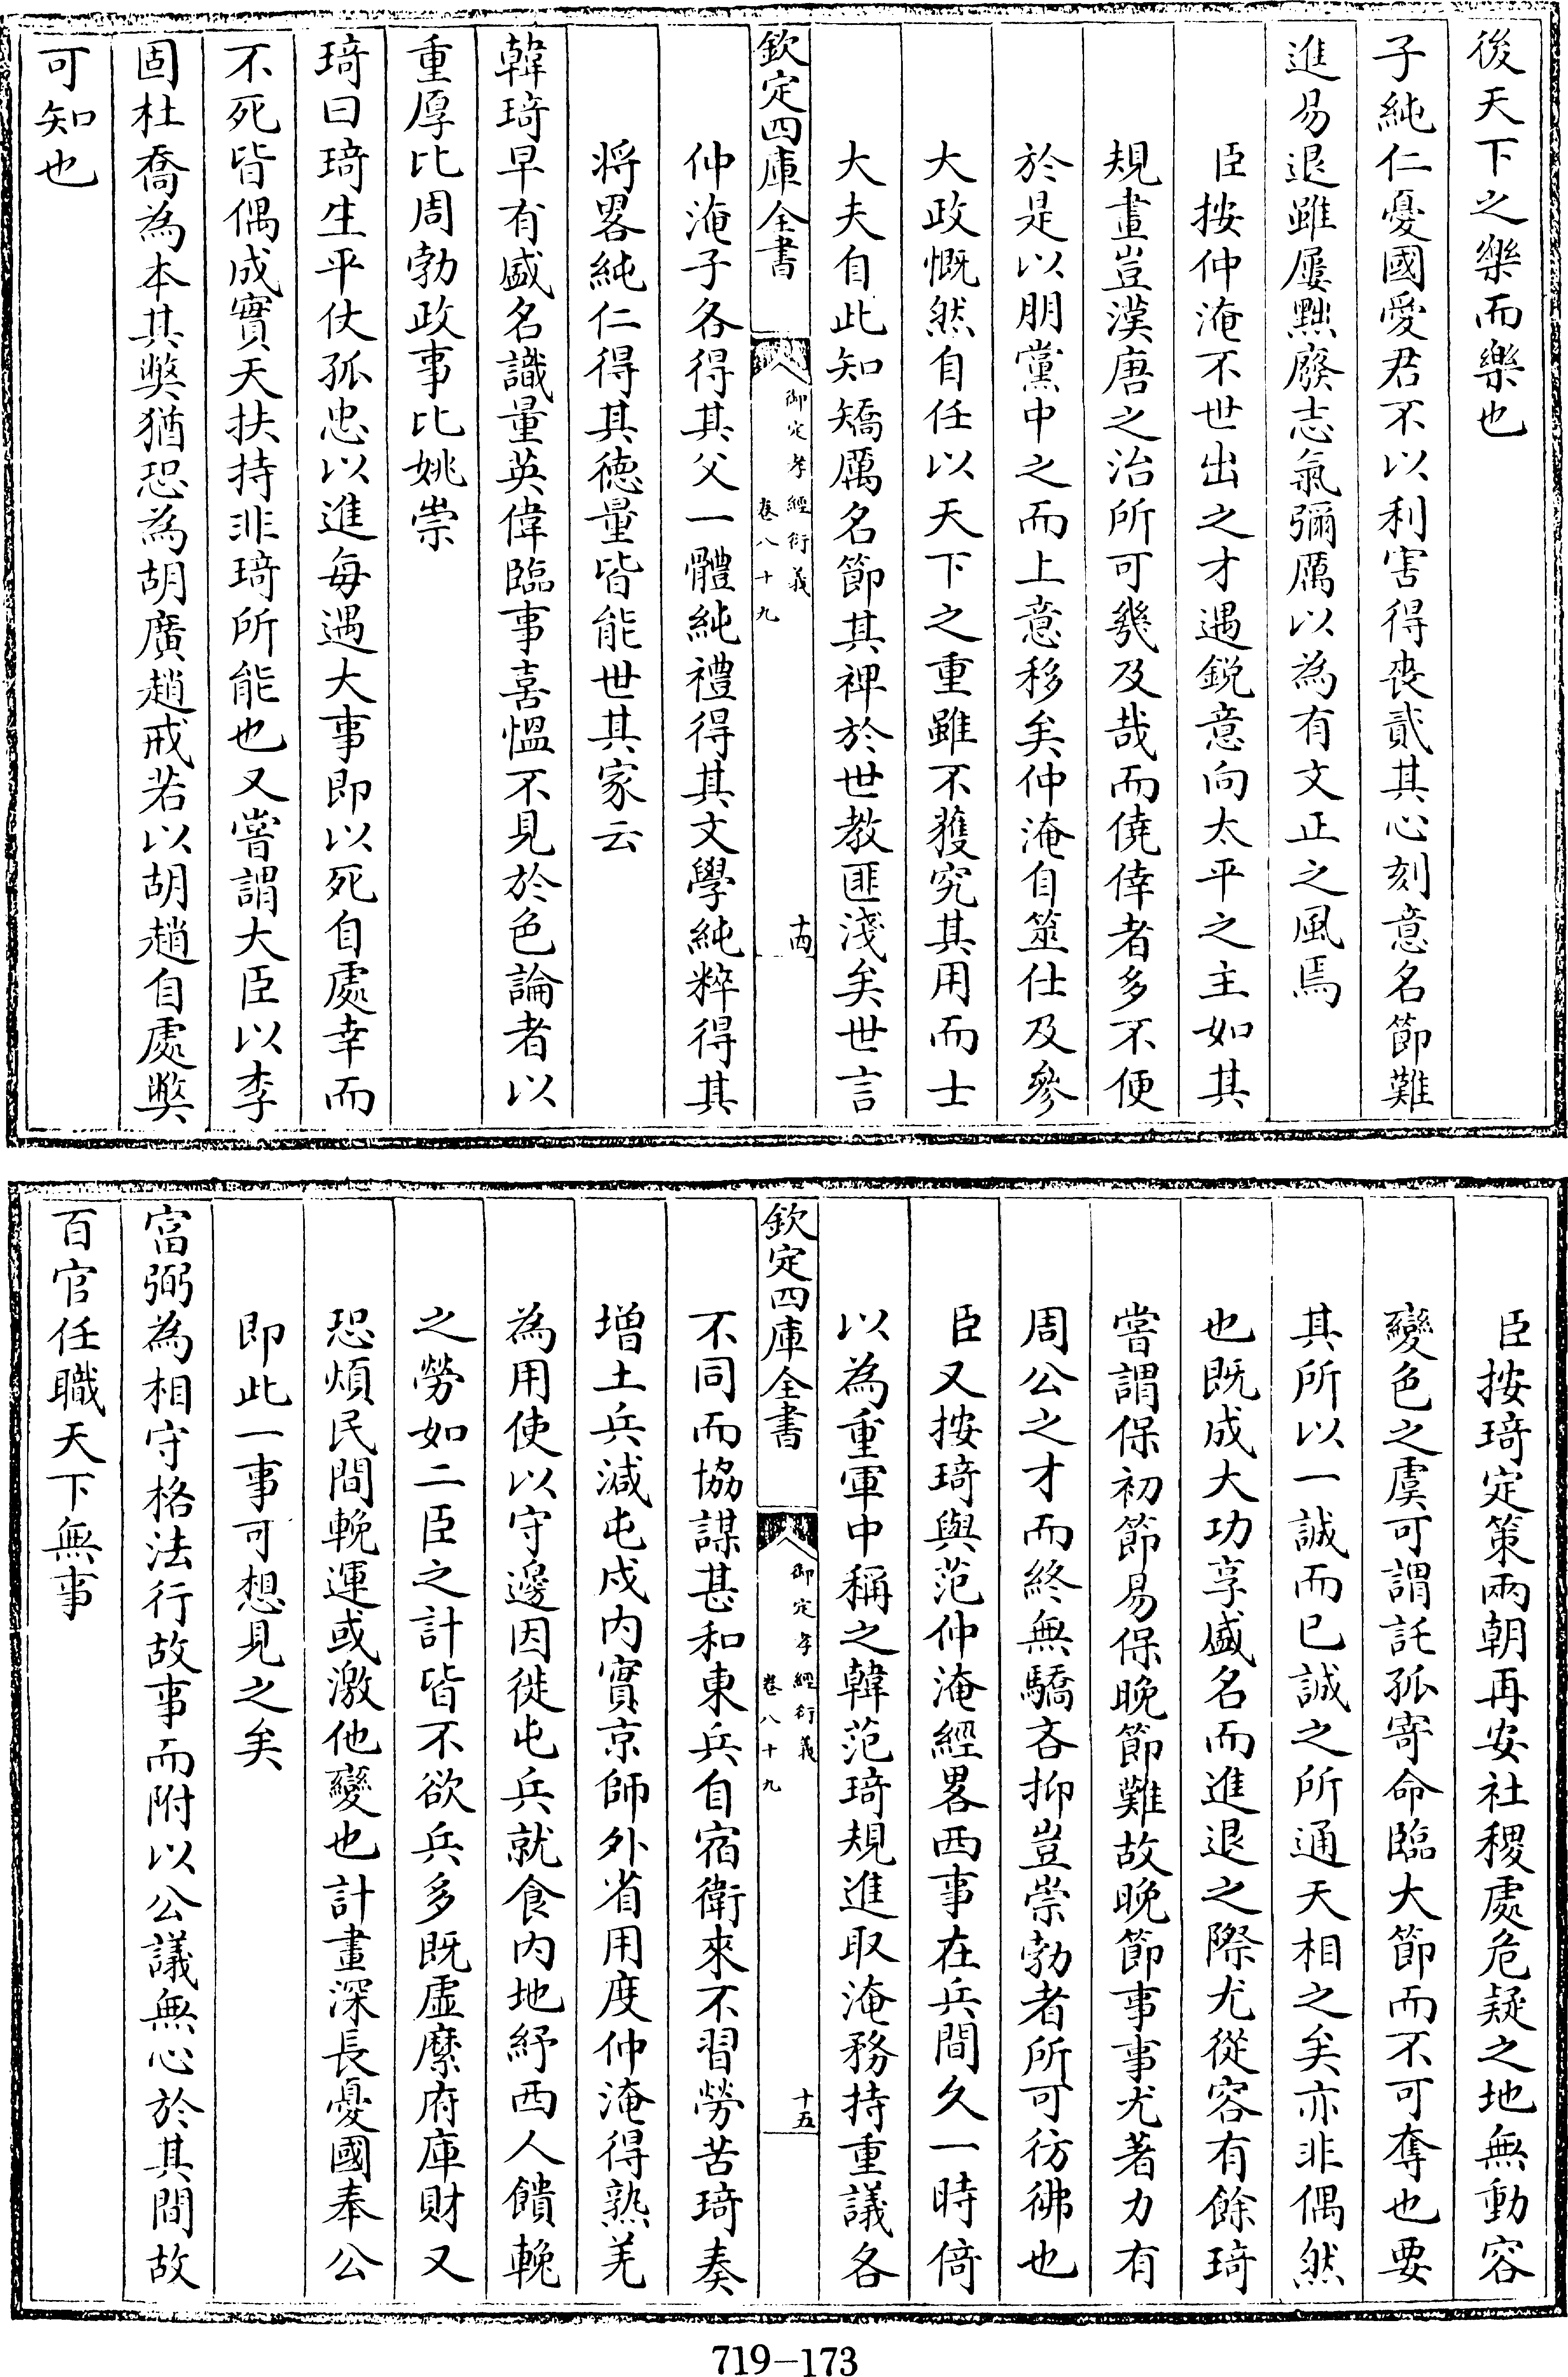 後天下之樂而樂也
子純仁憂國愛君不以利害得喪貳其心刻意名節難
進易退雖屢黜廢志氣彌厲以為有文正之風焉
臣按仲淹不世出之才遇銳意向太平之主如其
規畫豈漢唐之治所可幾及哉而僥倖者多不便
於是以朋黨中之而上意移矣仲淹自筮仕及參
大政慨然自任以天下之重雖不獲究其用而士
大夫自此知矯厲名節其裨於世教匪淺矣世言
欽定四庫全書
御定孝經衍義
卷八十九
十四
仲淹子各得其父一體純禮得其文學純粹得其
將畧純仁得其德量皆能世其家云
韓琦早有盛名識量英偉臨事喜慍不見於色論者以
重厚比周勃政事比姚崇
琦曰琦生平仗孤忠以進每遇大事即以死自處幸而
不死皆偶成實天扶持非琦所能也又嘗謂大臣以李
固杜喬為本其獘猶恐為胡廣趙戒若以胡趙自處獘
可知也
臣按琦定策兩朝再安社稷處危疑之地無動容
變色之虞可謂託孤寄命臨大節而不可奪也要
其所以一誠而已誠之所通天相之矣亦非偶然
也既成大功享盛名而進退之際尤從容有餘琦
嘗謂保初節易保晚節難故晚節事事尤著力有
周公之才而終無驕吝抑豈崇勃者所可彷彿也
臣又按琦與范仲淹經畧西事在兵間久一時倚
以為重軍中稱之韓范琦規進取淹務持重議各
欽定四庫全書
御定孝經衍義
卷八十九
十五
不同而協謀甚和東兵自宿衛來不習勞苦琦奏
增土兵減屯戍內實京師外省用度仲淹得熟羌
為用使以守邊因徙屯兵就食內地紓西人饋輓
之勞如二臣之計皆不欲兵多既虛縻府庫財又
恐煩民間輓運或激他變也計畫深長憂國奉公
即此一事可想見之矣
富弼為相守格法行故事而附以公議無心於其間故
百官任職天下無事
719-173